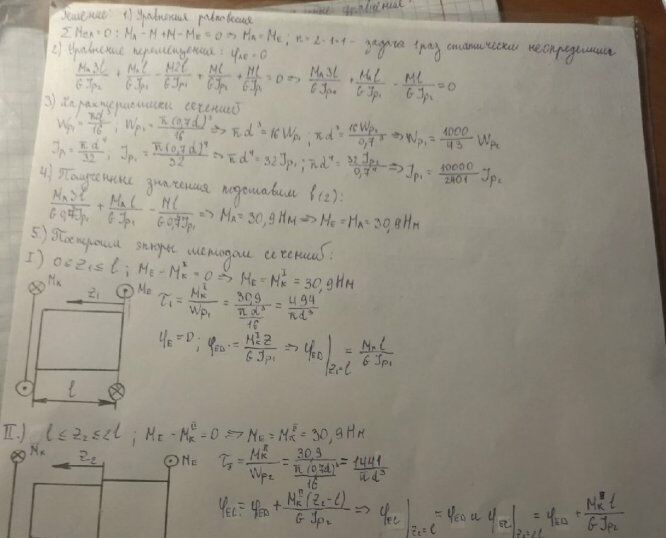 Решение: 1) Уравнения равновесия
Σ Mслк = 0 : MA - M + M - ME = 0 => MA = ME ; n = 2-1 = 1 - задача 1 раз статически неопределима
2) Уравнение перемещения : φAE = 0
MA3l/GJp2 + MAl/GJp1 - M2l/GJp2 + Ml/GJp2 + Ml/GJp1 = 0 => MA3l/GJp2 + MAl/GJp1 - Ml/GJp2 = 0
3) Характеристики сечений
Wp1 = πd³/16 ; Wp2 = π(0,7d)³/16 => πd³ = 16Wp1 ; πd³ = 16Wp2/0,7³ => Wp1 = 1000/343 Wp2
Jp1 = πd⁴/32 ; Jp2 = π(0,7d)⁴/32 => πd⁴ = 32Jp1 ; πd⁴ = 32Jp2/0,7⁴ => Jp1 = 10000/2401 Jp2
4) Полученные значения подставим в (2) :
MA3l/G0,7⁴Jp1 + MAl/GJp1 - Ml/G0,7⁴Jp1 => MA = 30,9 Нм => ME = MA = 30,9 Нм
5.) Построим эпюры методом сечений :
I.) 0 ≤ Z1 ≤ l ; ME - MкI = 0 => ME = MкI = 30,9 Нм
Mк
Z1
ME
τ1 = MкI/Wp1 = 30,9/(πd³/16) = 494/πd³
φE = 0 ; φED = MкIZ/GJp1 => φED|Z1=l = MкIl/GJp1
l
II.) l ≤ Z2 ≤ 2l ; ME - MкII = 0 => ME = MкII = 30,9 Нм
Mк
Z2
ME
τ2 = MкII/Wp2 = 30,9/(π(0,7d)³/16) = 1441/πd³
φEC = φED + MкII(Z2-l)/GJp2 => φEC|Z2=l = φED и φEC|Z2=2l = φED + MкIIl/GJp2